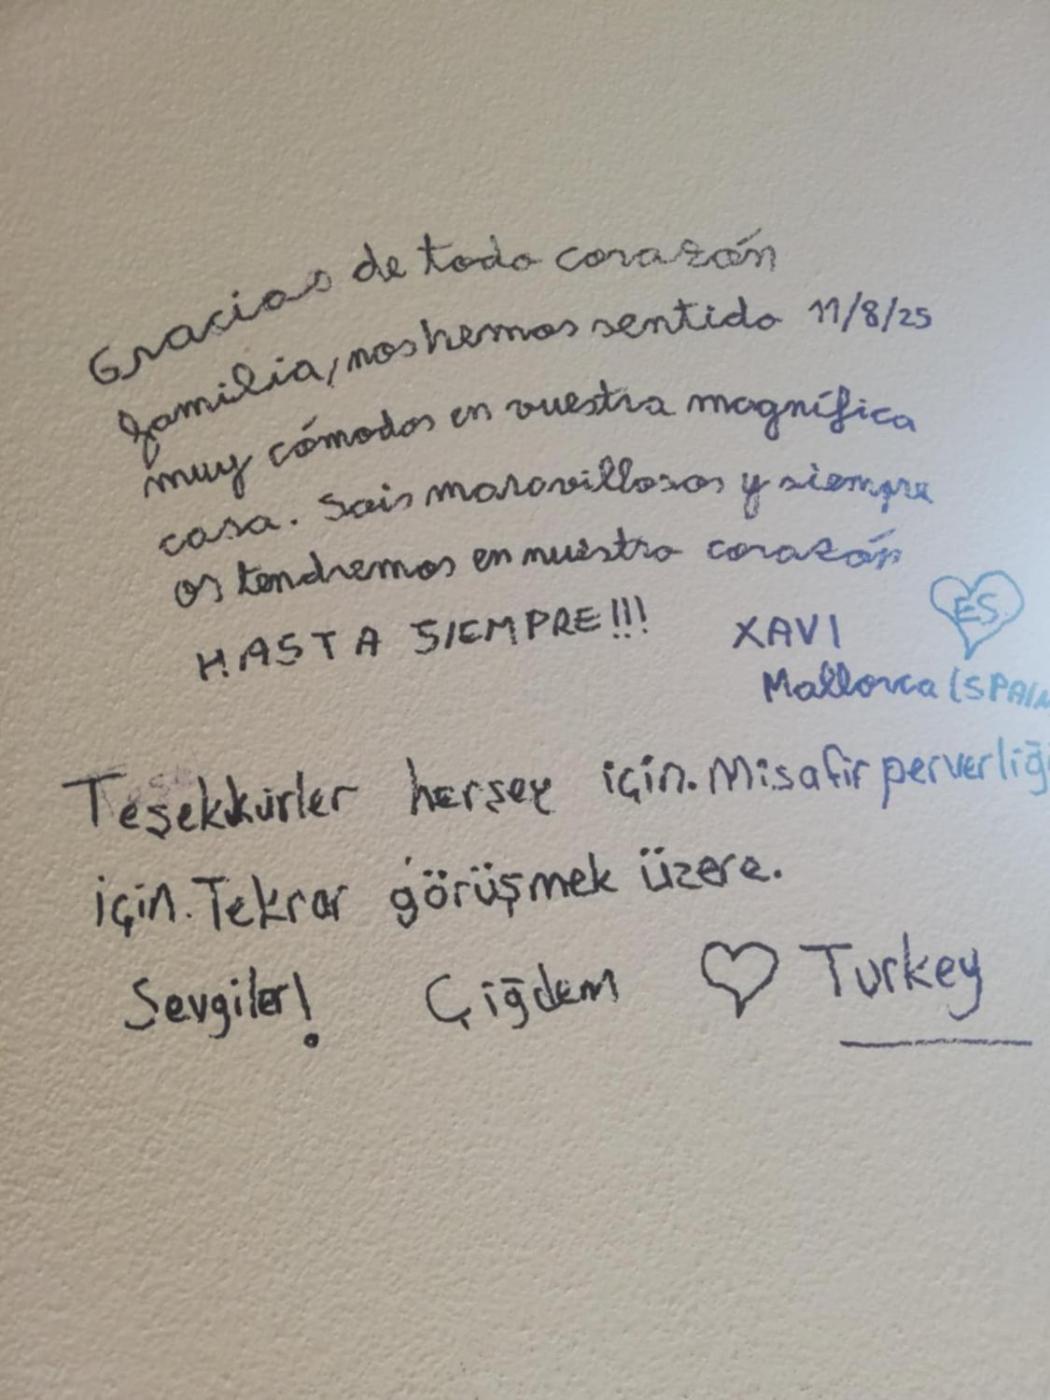 Gracias de todo corazón
familia, nos hemos sentido 11/8/25
muy cómodos en vuestra magnífica
casa. Sois maravillosos y siempre
os tendremos en nuestro corazón
HASTA SIEMPRE!!! XAVI ES
Mallorca (SPAIN
Teşekkürler herşey için. Misafirperverliği
için. Tekrar görüşmek üzere.
Sevgiler! Çiğdem Turkey